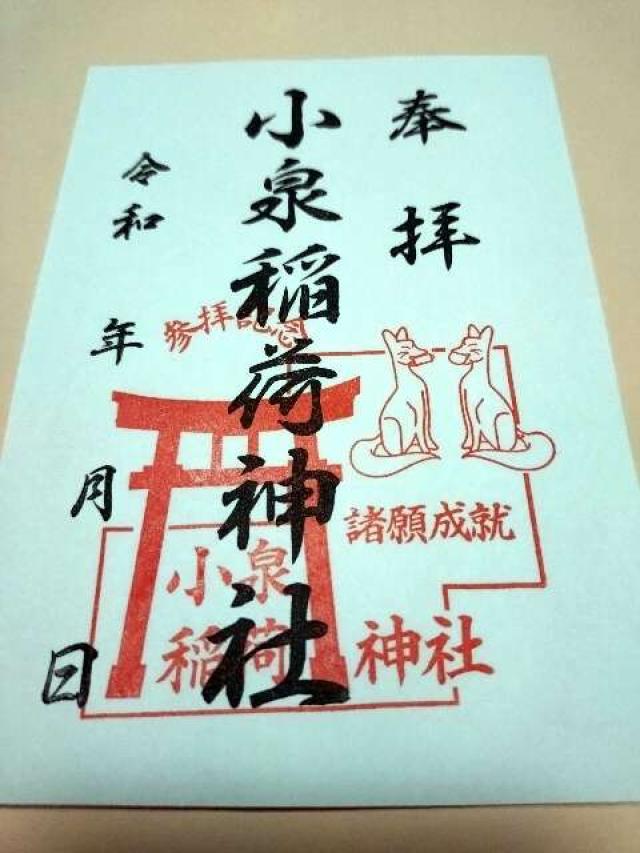 奉拝
小泉稲荷神社
令和 年 月 日
參拝記念
諸願成就
小泉
稲荷神社